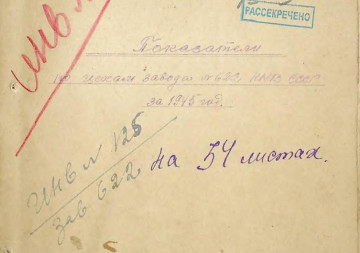 РАССЕКРЕЧЕНО
ИНВ №
Показатели
по цехам завода № 622 НКВ СССР
за 1945 год.
ИНВ № 125
Зав 622
на 54 листах.